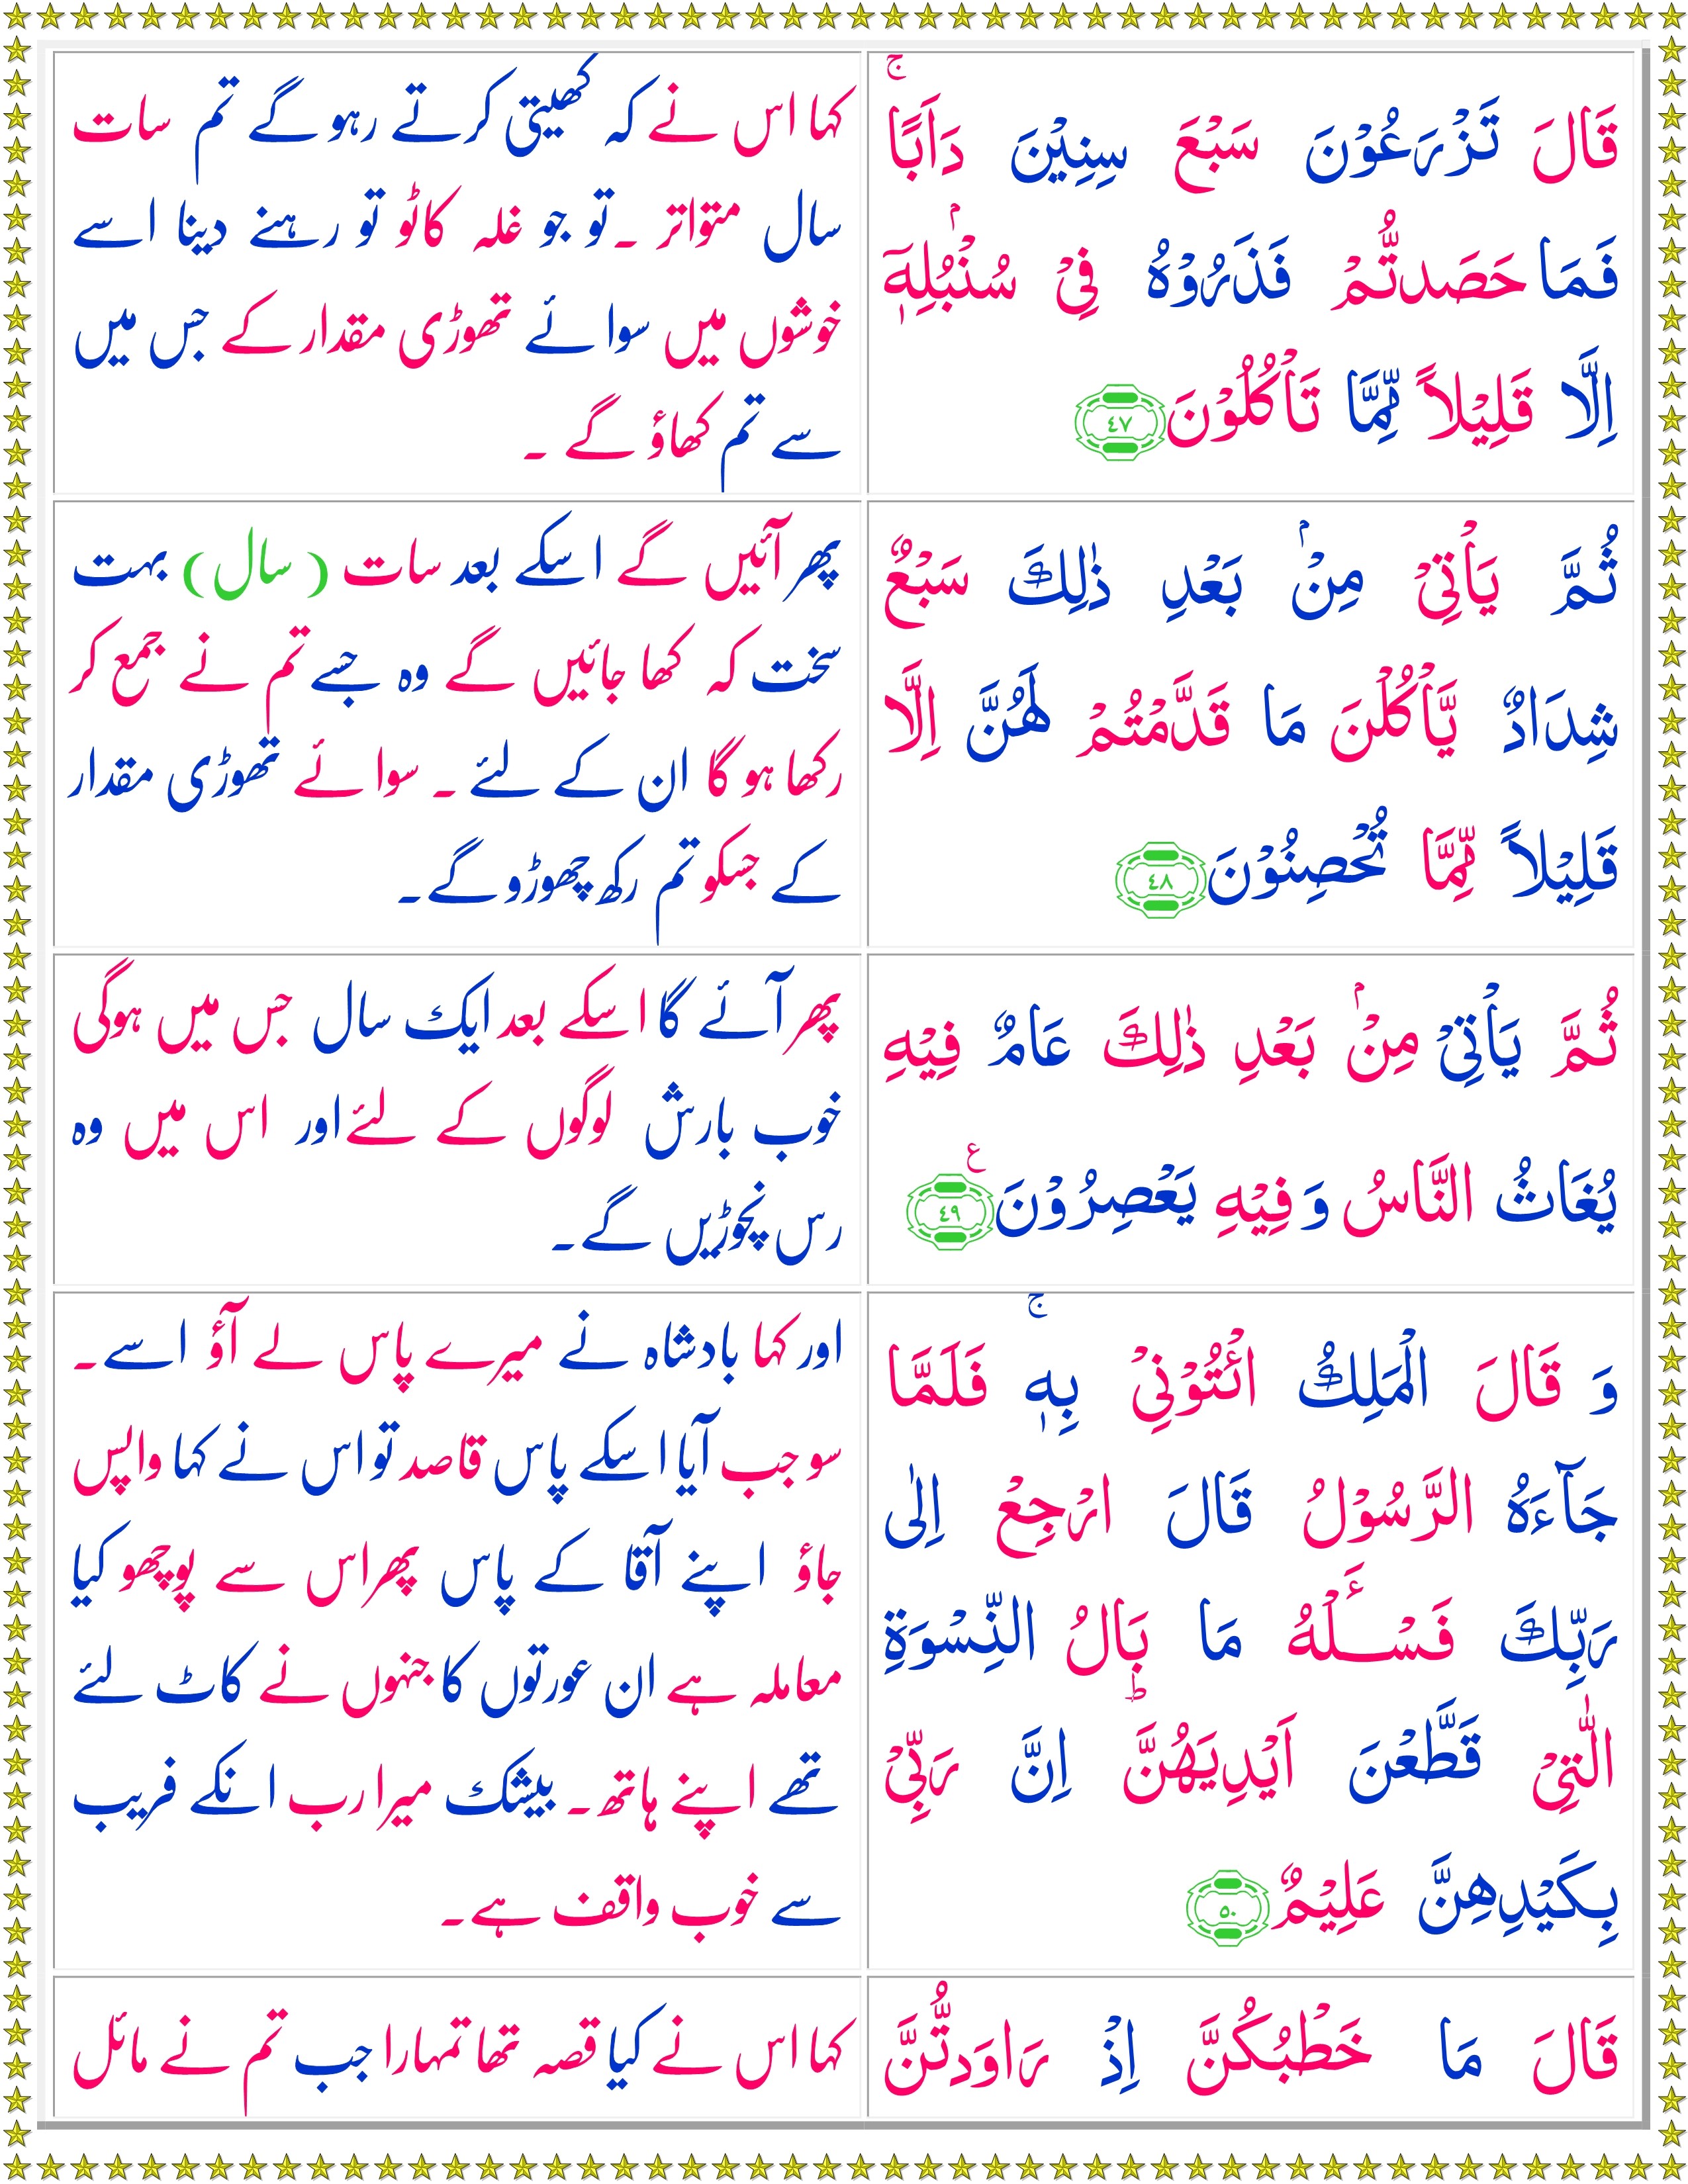 قَالَ تَزْرَعُوْنَ سَبْعَ سِنِيْنَ دَاَبًا ۚ
فَمَا حَصَدتُّمْ فَذَرُوْهُ فِىْ سُنْۢبُلِهٖۤ
اِلَّا قَلِيْلاً مِّمَّا تَاْكُلُوْنَ ﴿٤٧﴾
کہا اس نے کہ کھیتی کرتے رہو گے تم سات
سال متواتر ۔ تو جو غلہ کاٹو تو رہنے دینا اسے
خوشوں میں سوائے تھوڑی مقدار کے جس میں
سے تم کھاؤ گے ۔
ثُمَّ يَاْتِىْ مِنْۢ بَعْدِ ذٰلِكَ سَبْعٌ
شِدَادٌ يَّاْكُلْنَ مَا قَدَّمْتُمْ لَهُنَّ اِلَّا
قَلِيْلاً مِّمَّا تُحْصِنُوْنَ ﴿٤٨﴾
پھر آئیں گے اسکے بعد سات (سال) بہت
سخت کہ کھا جائیں گے وہ جسے تم نے جمع کر
رکھا ہو گا ان کے لئے ۔ سوائے تھوڑی مقدار
کے جسکو تم رکھ چھوڑو گے۔
ثُمَّ يَاْتِىْ مِنْۢ بَعْدِ ذٰلِكَ عَامٌ فِيْهِ
يُغَاثُ النَّاسُ وَ فِيْهِ يَعْصِرُوْنَ ﴿٤٩﴾ ع
پھر آئے گا اسکے بعد ایک سال جس میں ہوگی
خوب بارش لوگوں کے لئے اور اس میں وہ
رس نچوڑیں گے۔
وَ قَالَ الْمَلِكُ ائْتُوْنِىْ بِهٖ ۚ فَلَمَّا
جَآءَهُ الرَّسُوْلُ قَالَ ارْجِعْ اِلٰى
رَبِّكَ فَسْــَٔلْهُ مَا بَالُ النِّسْوَةِ
الّٰتِىْ قَطَّعْنَ اَيْدِيَهُنَّ ؕ اِنَّ رَبِّىْ
بِكَيْدِهِنَّ عَلِيْمٌ ﴿٥٠﴾
اور کہا بادشاہ نے میرے پاس لے آؤ اسے۔
سو جب آیا اسکے پاس قاصد تو اس نے کہا واپس
جاؤ اپنے آقا کے پاس پھر اس سے پوچھو کیا
معاملہ ہے ان عورتوں کا جنہوں نے کاٹ لئے
تھے اپنے ہاتھ۔ بیشک میرا رب انکے فریب
سے خوب واقف ہے۔
قَالَ مَا خَطْبُكُنَّ اِذْ رَاوَدتُّنَّ
کہا اس نے کیا قصہ تھا تمہارا جب تم نے مائل